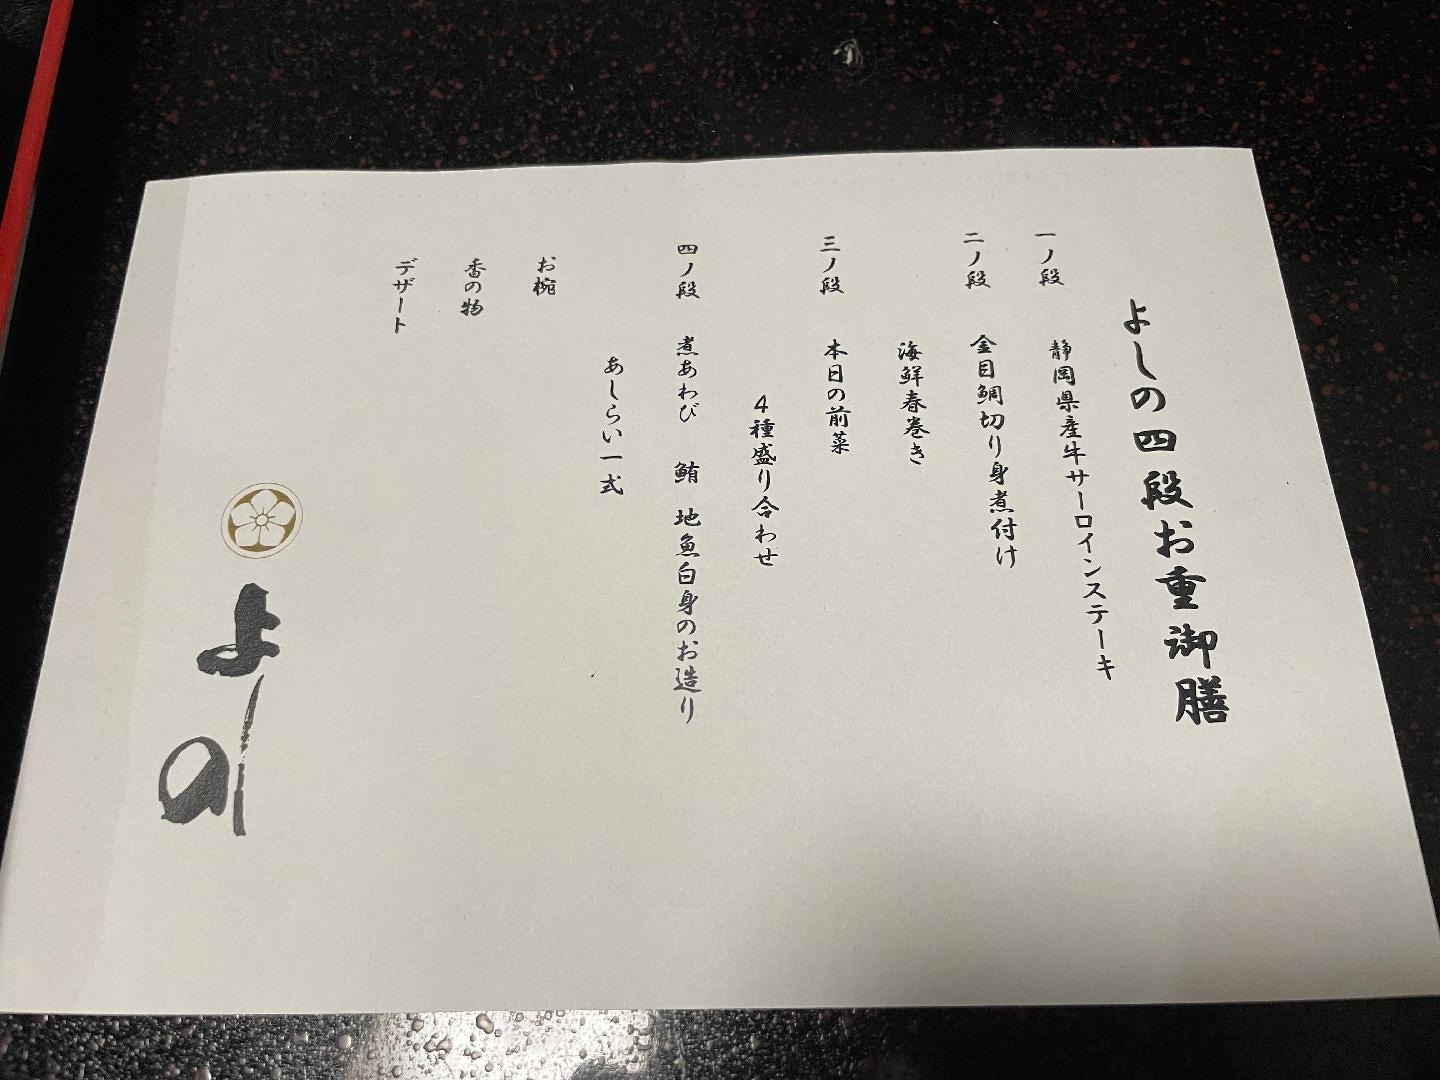 よしの四段お重御膳
一ノ段 静岡県産牛サーロインステーキ
二ノ段 金目鯛切り身煮付け
海鮮春巻き
三ノ段 本日の前菜
4種盛り合わせ
四ノ段 煮あわび 鮪 地魚白身のお造り
あしらい一式
お椀
香の物
デザート
よしの